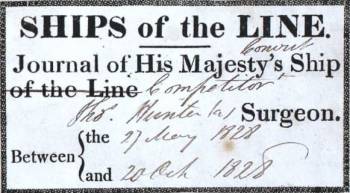 SHIPS of the LINE.
Convict
Journal of His Majesty's Ship
of the Line Competitor
Thos. Hunter Surgeon.
Between { the 27 May 1828
and 20 Oct 1828